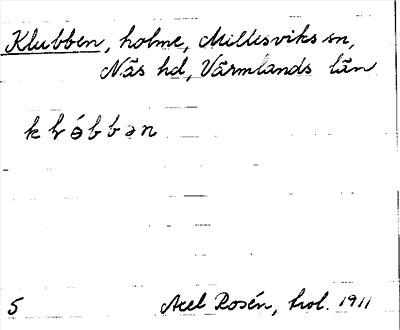 Klubben, holme, Millesviks sn,
Näs hd, Värmlands län
klɵ́bbən
5 Axel Rosén, hol. 1911